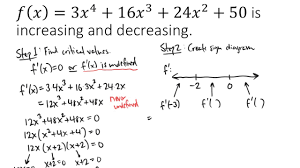 f(x) = 3x⁴ + 16x³ + 24x² + 50 is
increasing and decreasing.
Step 1: Find critical values
f'(x)=0 or f'(x) is undefined
f'(x)= 3·4x³ + 16·3x² + 24·2x
= 12x³+48x²+48x never undefined
12x³+48x²+48x = 0
12x(x²+4x+4) = 0
12x(x+2)(x+2) = 0
x+2=0 x+2=0
Step 2: Create sign diagram
f':
-2 0
f'(-3) f'( ) f'( )